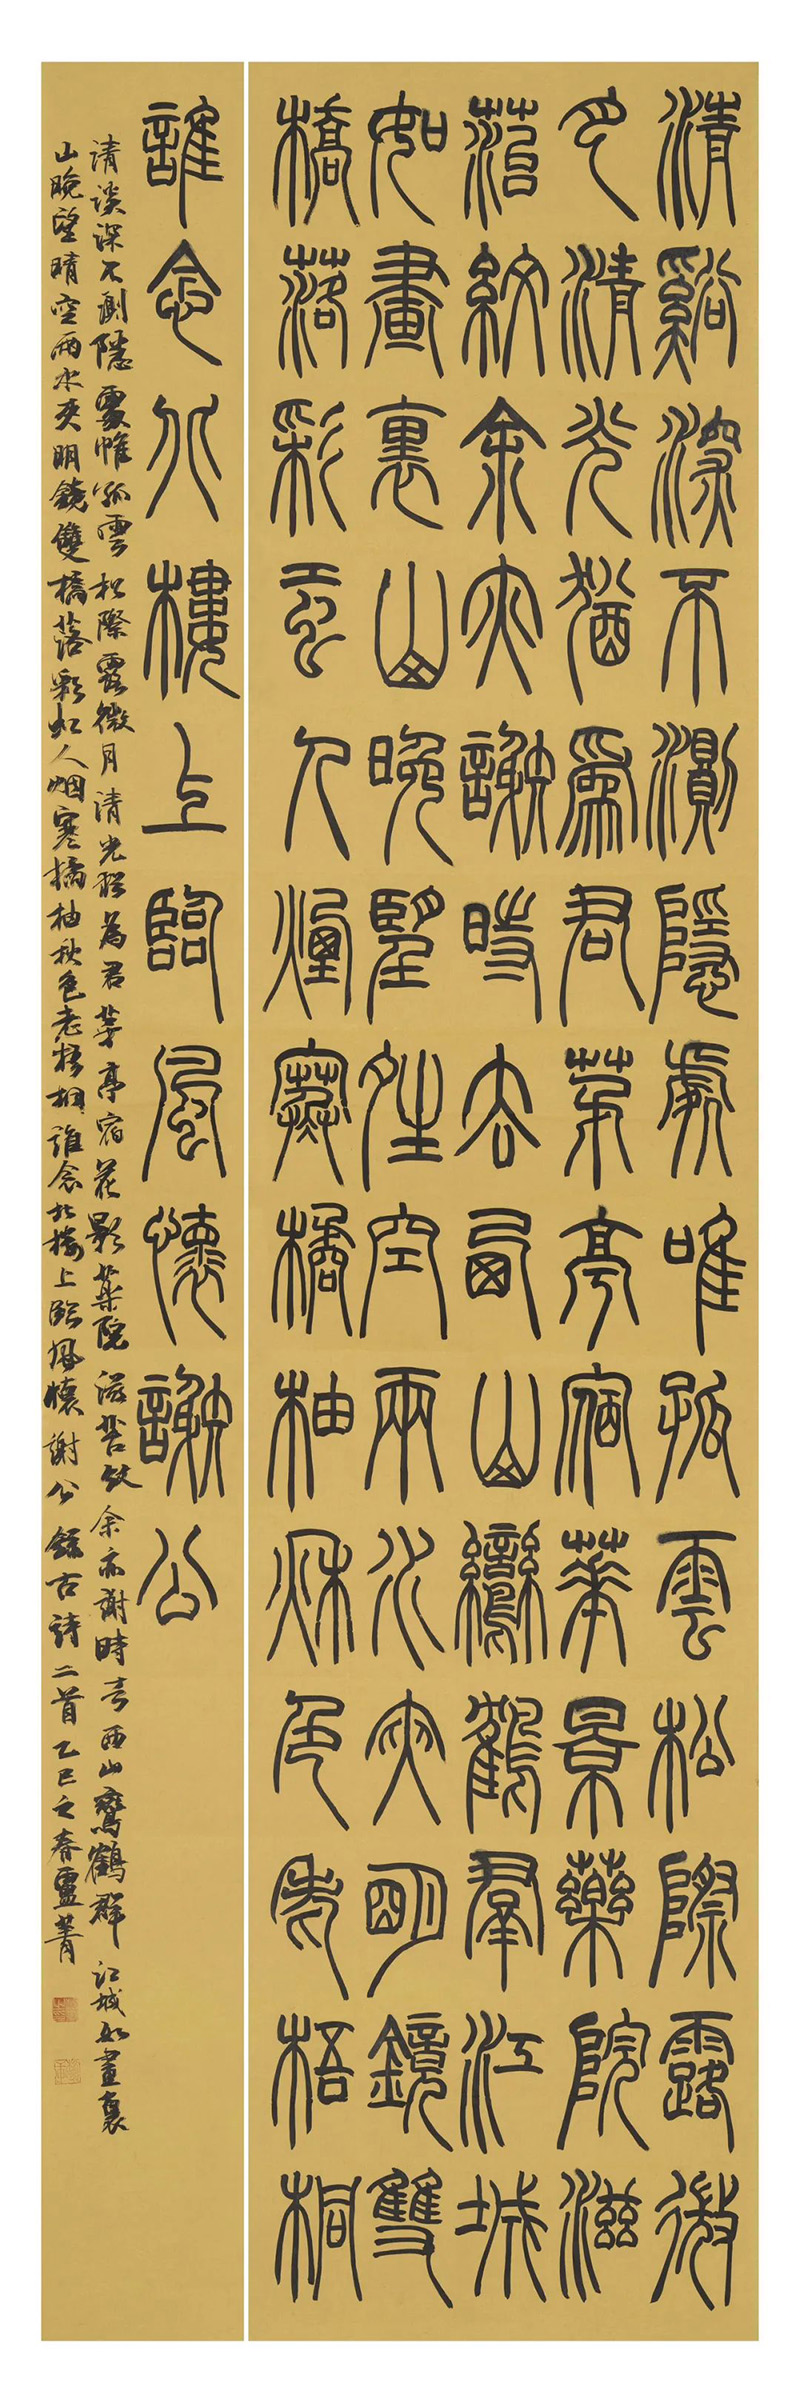 清谿深不測隱處唯孤雲松際露微
月清光猶為君茅亭宿華景藥院滋
苔紋余亦謝時去西山鸞鶴群江城
如畫裏山晚望晴空兩水夾明鏡雙
橋落彩虹人煙寒橘柚秋色老梧桐
誰念北樓上臨風懷謝公
清溪深不測隱處惟孤雲松際露微月清光猶為君茅亭宿花影藥院滋苔紋余亦謝時去西山鸞鶴群 江城如畫裏
山晚望晴空兩水夾明鏡雙橋落彩虹人烟寒橘柚秋色老梧桐誰念北樓上臨風懷謝公 錄古詩二首乙巳之春盧菁